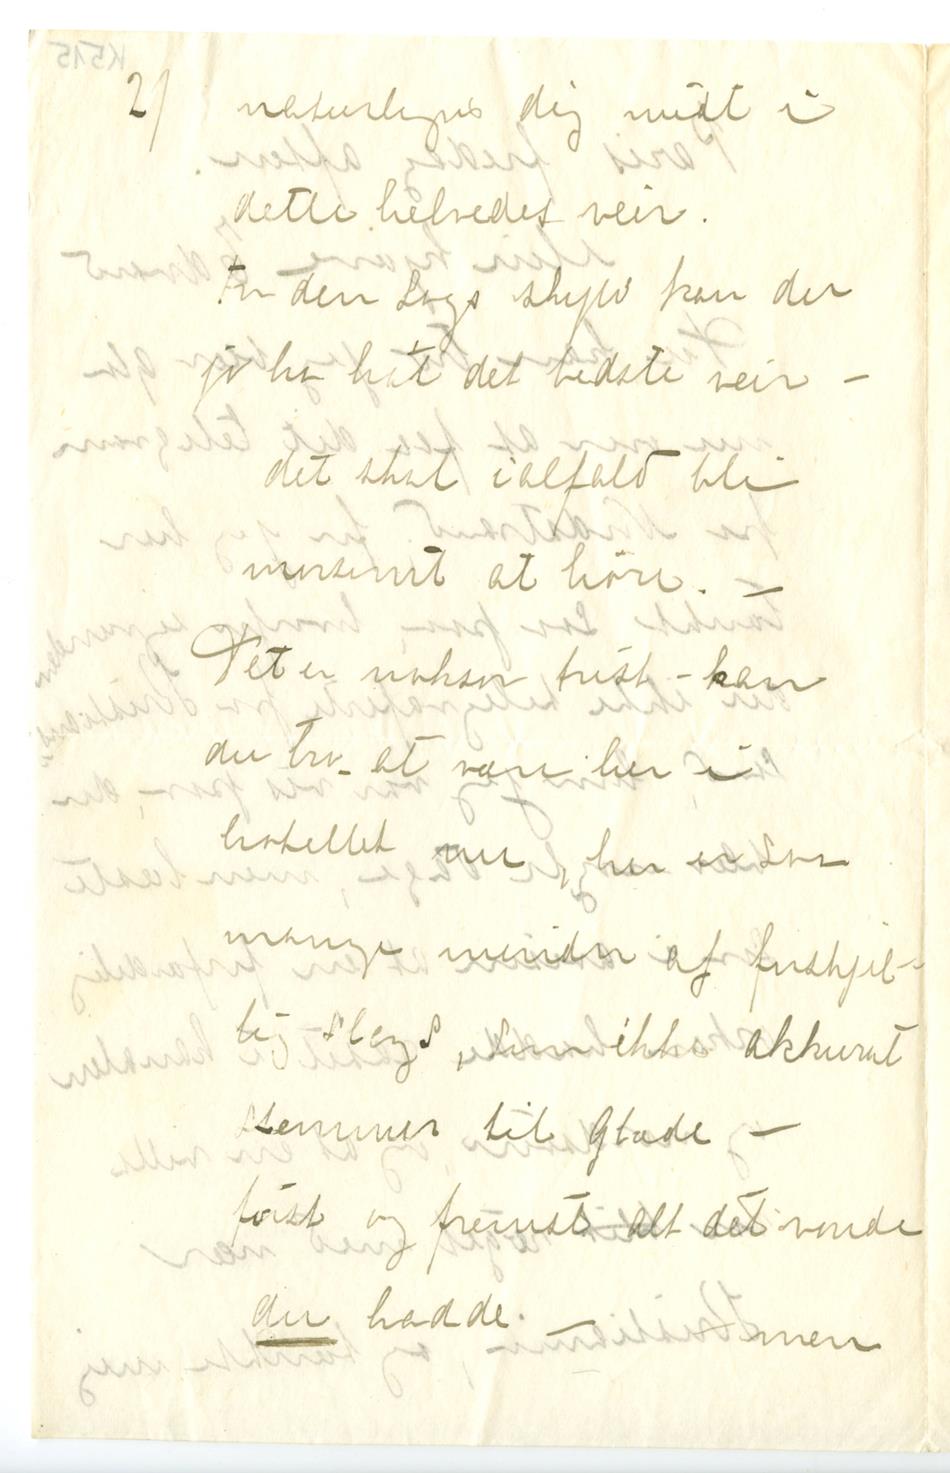 2/ naturligvis dig midt i
dette helvedes veir.
For den Sags skyld kan der
jo ha hat det bedste veir –
det skal ialfald bli
morsomt at höre. –
Det er noksor trist – kan
du tro – at være her i
hotellet nu, her er saa
mange minder af forskjel-
lig slags, som ikke akkurat
stemmer til Glæde –
först og fremst alt det vonde
du hadde – men